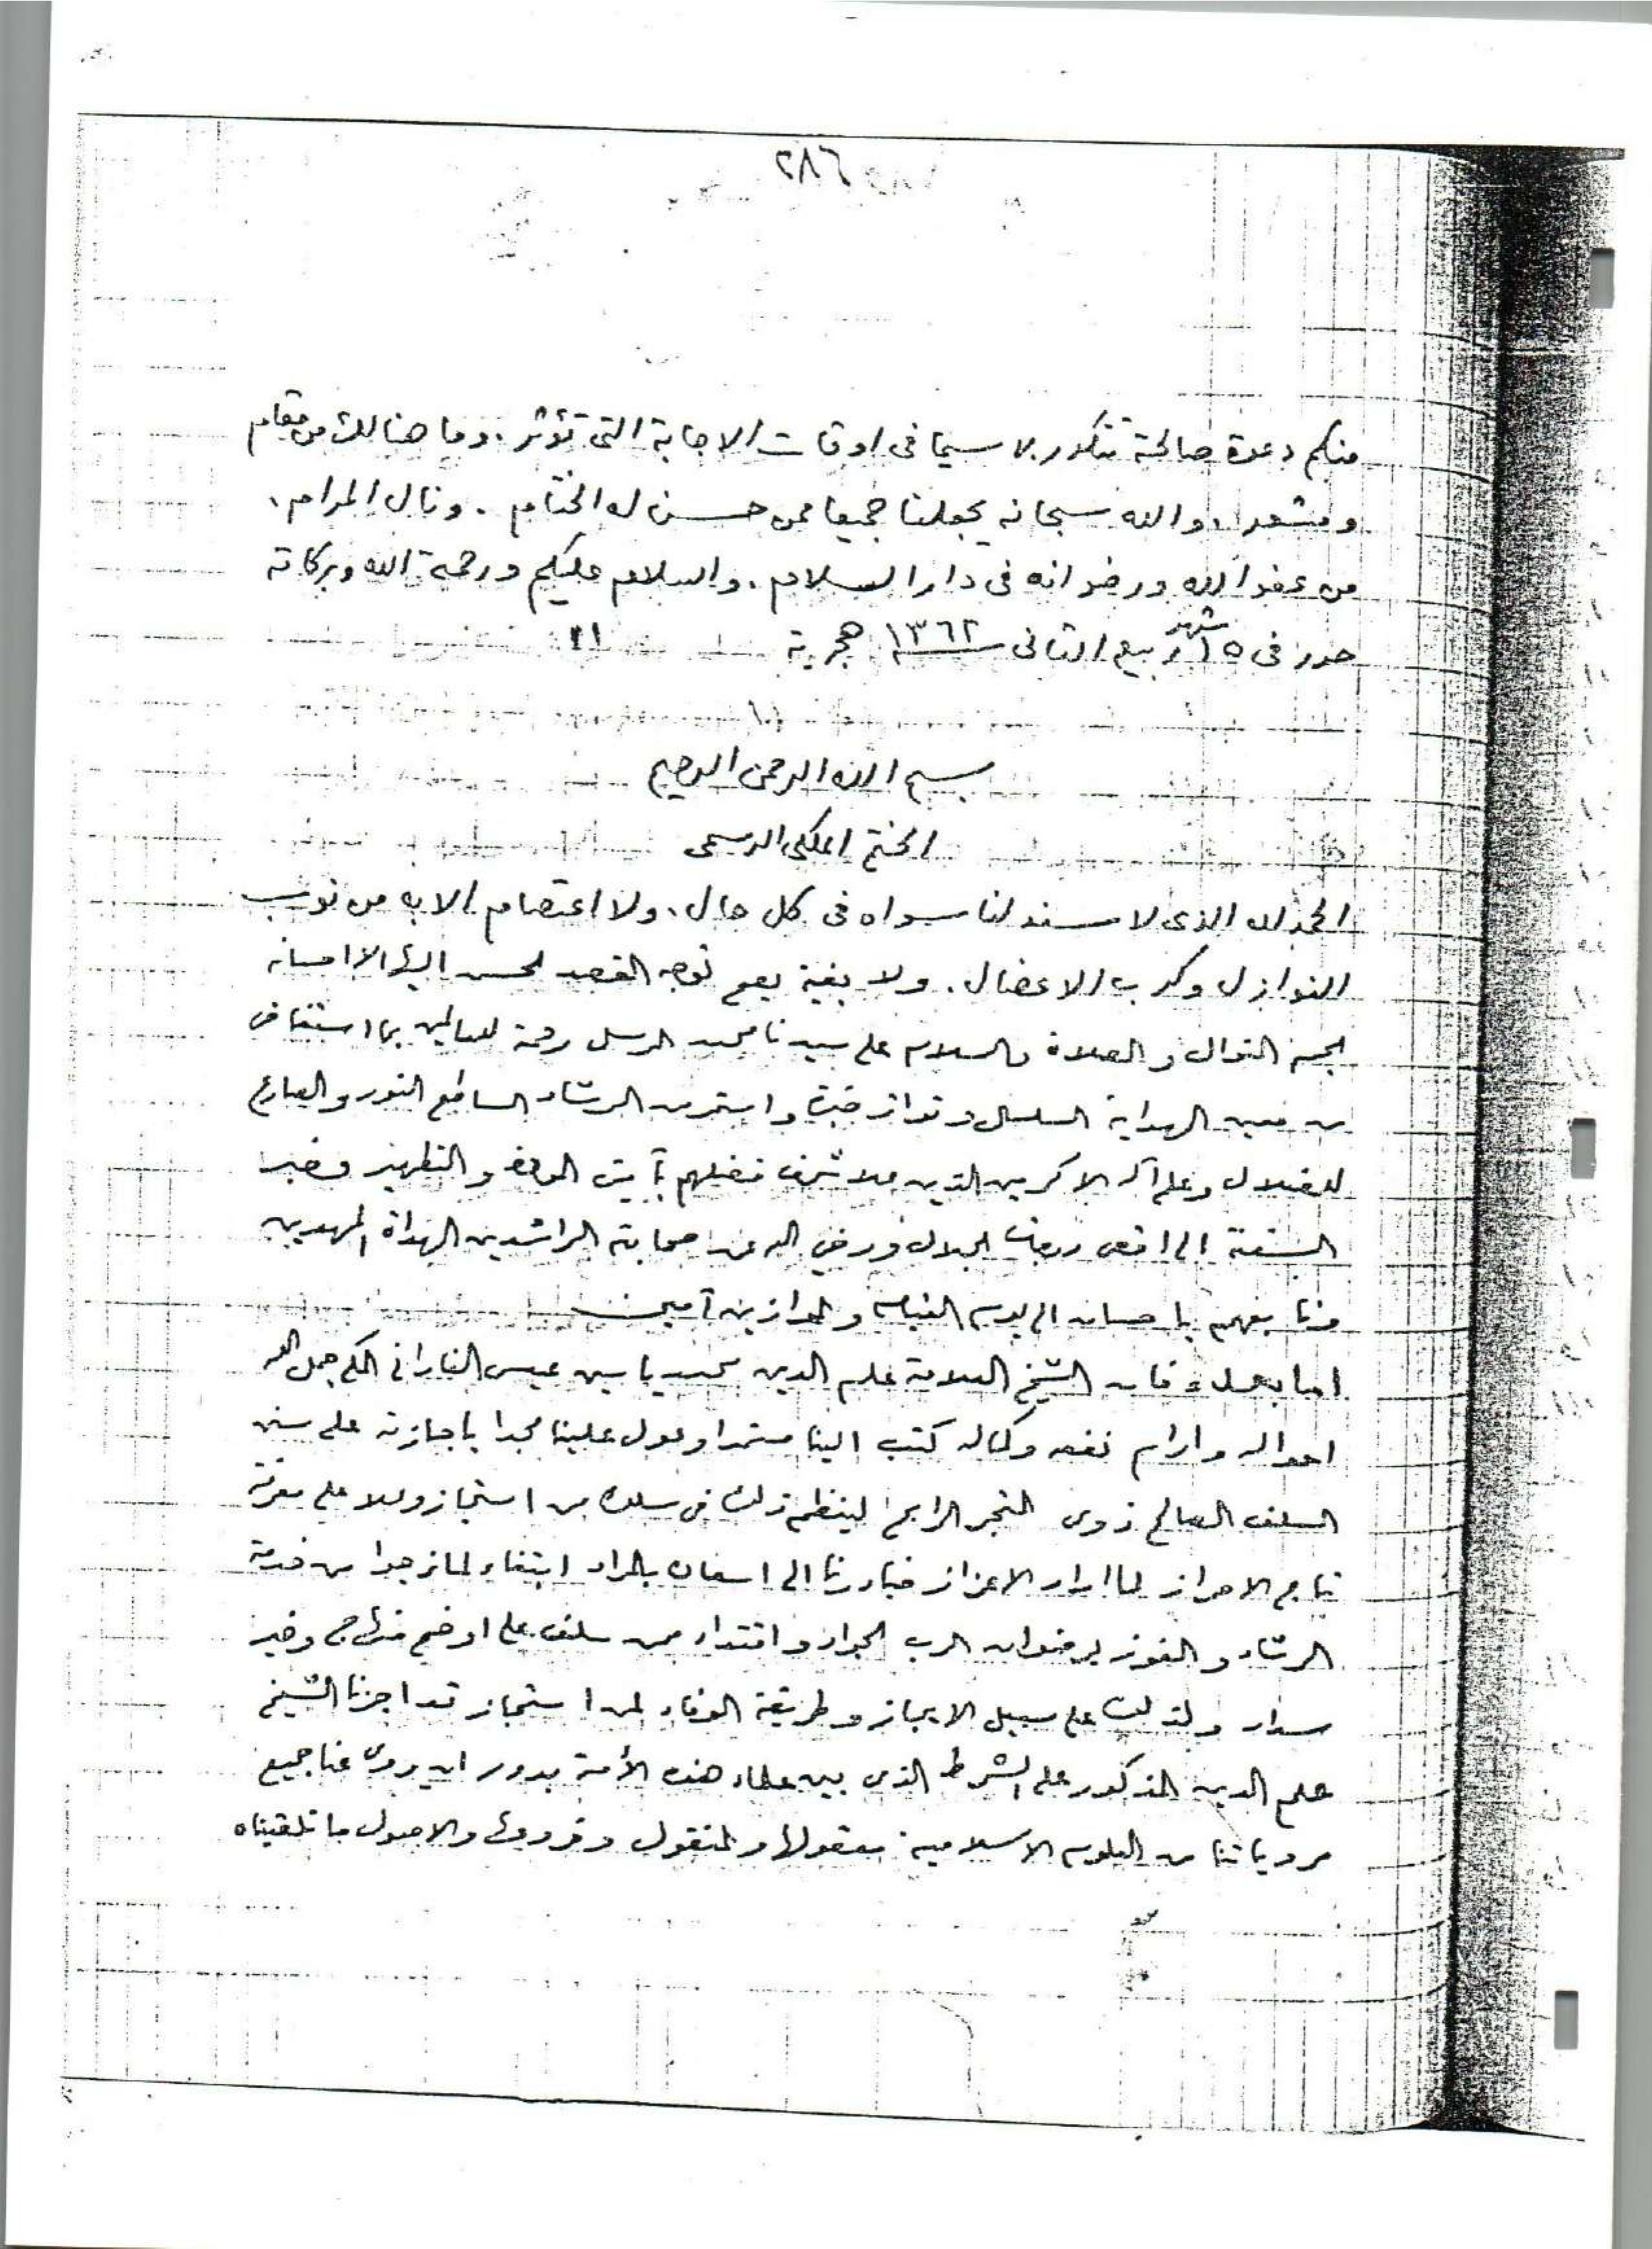 ٢٨٦
منكم دعوة صالحة تتكرر لا سيما في اوقات الاجابة التى تؤثر. وما هنالك من مقام
ومشعر. والله سبحانه يجعلنا جميعا ممن حسن له الختام. ونال المرام.
من عفو الله ورضوانه فى دار السلام. والسلام عليكم ورحمة الله وبركاته
حرر فى ١٥ شهر ربيع الثانى سنة ١٣٦٢ هجرية
بسم الله الرحمن الرحيم
الختم الملكى الرسمى
الحمد لله الذى لا مسند لنا سواه فى كل حال. ولا اعتصام الا به من نوب
النوازل وكرب الاعضال. ولا بغية يعم توجه القصد اليها الا احسانه
الجم النوال والصلاة والسلام على سيدنا محمد المرسل رحمة للعالمين بما استفاض
من معين الهداية السلسل وتواتر خبره واستمر من الرشاد الساطع النور والصادع
للضلال وعلى آله الاكرمين الذين علا شرف فضلهم بآيتى المودة والتطهير وخبر
السفينة الى اقصى درجات الجلال ورضي الله عن صحابته الراشدين الهداة المهديين
وتابعيهم باحسان الى يوم القيامة والموازين آمين
اما بعد فان الشيخ العلامة علم الدين محمد ياسين عيسى الفاداني المكي جمل الله
احواله وادام نفعه وكماله كتب الينا مستمدا وعول علينا مجدا باجازته على سنن
السلف الصالح ذوى المتجر الرابح لينظم ذلك فى سلك من استجاز وعلا على مفرقه
تاج الاحراز لما اراد الاعزاز فبادرنا الى اسعافه بالمراد ابتغاء لما نرجوا من خدمة
الرشاد والفوز برضوان الرب الجواد واقتداء بمن سلف على اوضح منهاج وخير
سداد ولذلك على سبيل الايجاز وطريقة الوفاء لمن استجاز قد اجزنا الشيخ
علم الدين المذكور على الشرط الذى بين علماء هذه الأمة يدور ان يروى عنا جميع
مروياتنا من العلوم الاسلامية معقولها والمنقول وفروعها والاصول ما تلقيناه